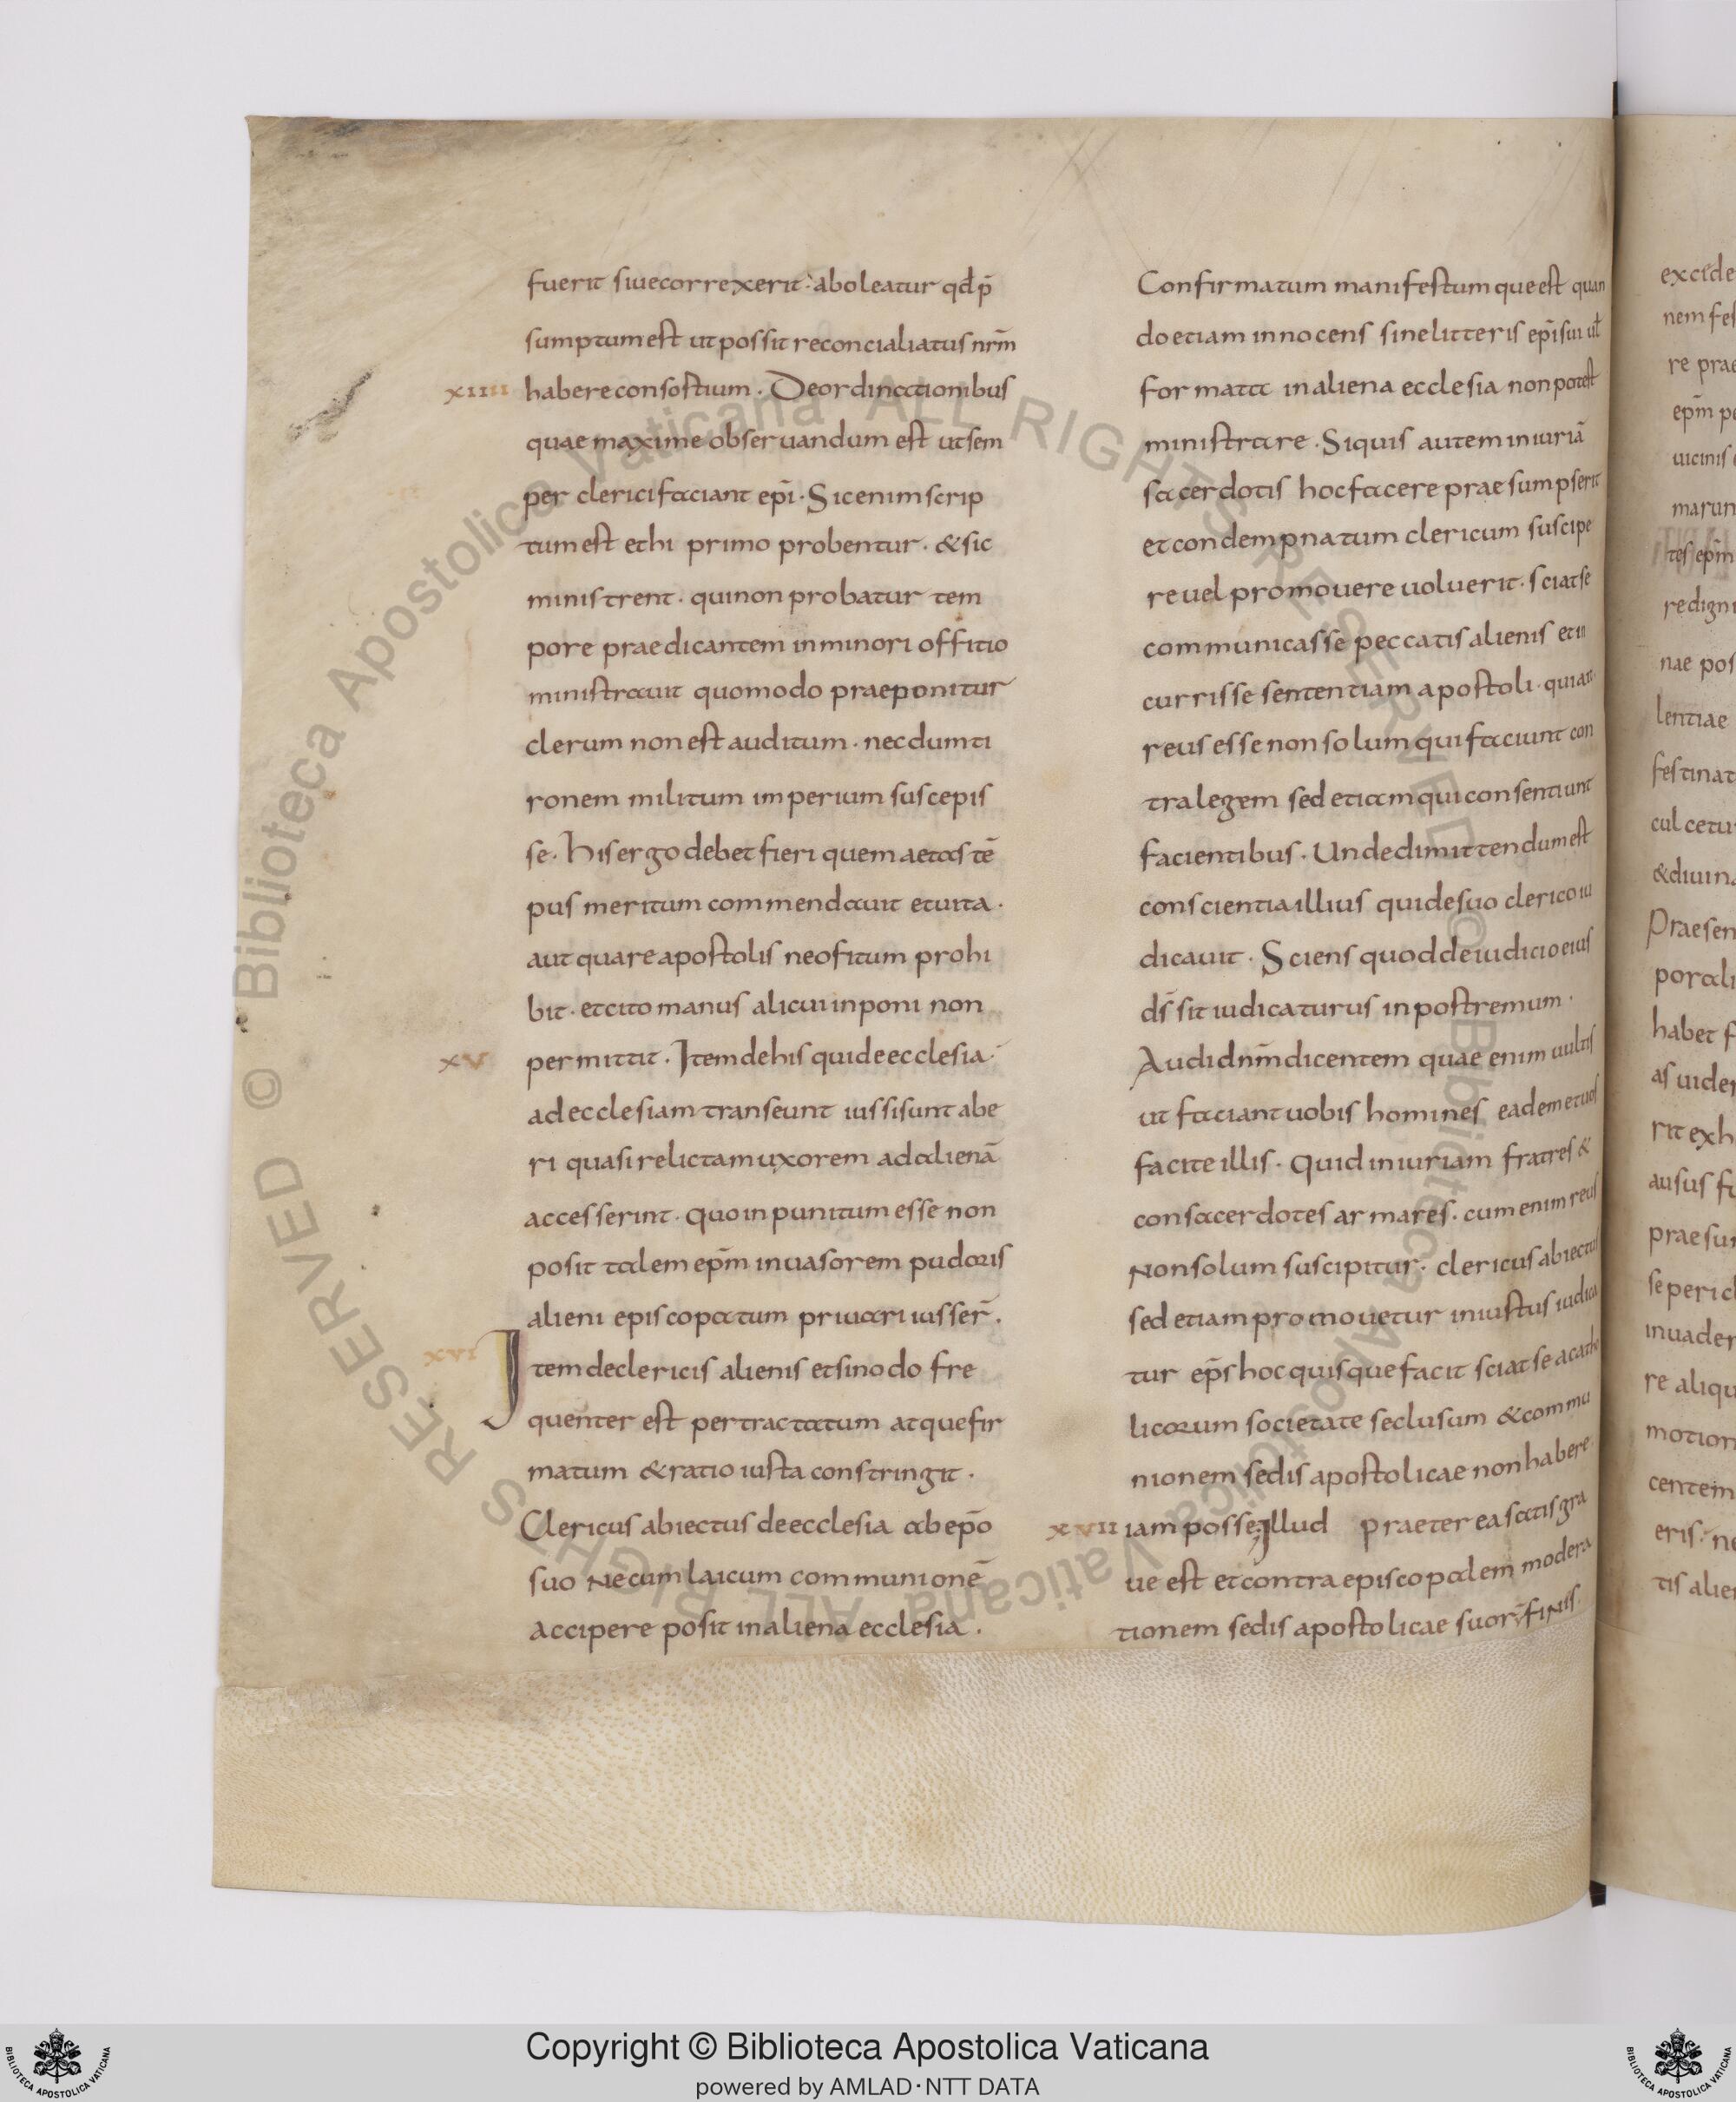 fuerit siue correxerit· aboleatur qđ p̄
sumptum est ut possit reconcialiatus nr̄m
xiiii habere consostium· De ordinationibus
quae maxime obseruandum est ut sem
per clerici faciant ep̄i· Sic enim scrip
tum est et hi primo probentur· & sic
ministrent· qui non probatur tem
pore praedicantem in minori offitio
ministrauit quomodo praeponitur
clerum non est auditum· nec dum ti
ronem militum imperium suscepis
se· His ergo debet fieri quem aetas tē
pus meritum commendauit et uita·
aut quare apostolis neofitum prohi
bit· et cito manus alicui inponi non
xv permittit· Item de his qui de ecclesia·
ad ecclesiam transeunt iussi sunt abe
ri quasi relictam uxorem ad alienā
accesserint· quo inpunitum esse non
posit talem ep̄m inuasorem pudoris
alieni episcopatum priuari iusser̄·
xvi Item de clericis alienis et sinodo fre
quenter est pertractatum atque fir
matum & ratio iusta constringit·
Clericus abiectus de ecclesia ab ep̄o
suo Nec cum laicum communionē
accipere posit in aliena ecclesia·
Confirmatum manifestumque est quan
do etiam innocens sine litteris ep̄i sui uł
formata in aliena ecclesia non potest
ministrare· Si quis autem iniuriā
sacerdotis hoc facere praesumpserit
et condempnatum clericum suscipe
re uel promouere uoluerit· sciat se
communicasse peccatis alienis et in
currisse sententiam apostoli· quia
reus esse non solum qui faciunt con
tra legem sed etiam qui consentiunt
facientibus· Unde dimittendum est
conscientia illius qui de suo clerico iu
dicauit· Sciens quod de iudicio eius
ds̄ sit iudicaturus in postremum·
Audi dn̄m dicentem quae enim uultis
ut faciant uobis homines eadem et uos
facite illis· Quid iniuriam fratres &
consacerdotes armares· cum enim reus
Non solum suscipitur· clericus abiectus
sed etiam promouetur iniustus iudica
tur ep̄s hoc quisque facit sciat se a catho
licorum societate seclusum & commu
nionem sedis apostolicae non habere
xvii iam posse· Illud praeterea satis gra
ue est et contra episcopalem modera
tionem sedis apostolicae suor̄· finis·
© Biblioteca Apostolica Vaticana ALL RIGHTS RESERVED © Biblioteca Apostolica Vaticana ALL RIGHTS RESERVED
nem fes
re prae
ep̄m pe
uicinis
marun
tes ep̄m
re digni
nae pos
lentiae
festinat
culcetur
& diuina
Praesen
porali
habet f
as uider
rit exh
ausus fu
praesu
se peric
inuader
re aliqu
motion
centem
eris· ne
tis alie
Copyright © Biblioteca Apostolica Vaticana
powered by AMLAD·NTT DATA
BIBLIOTECA APOSTOLICA VATICANA
BIBLIOTECA APOSTOLICA VATICANA